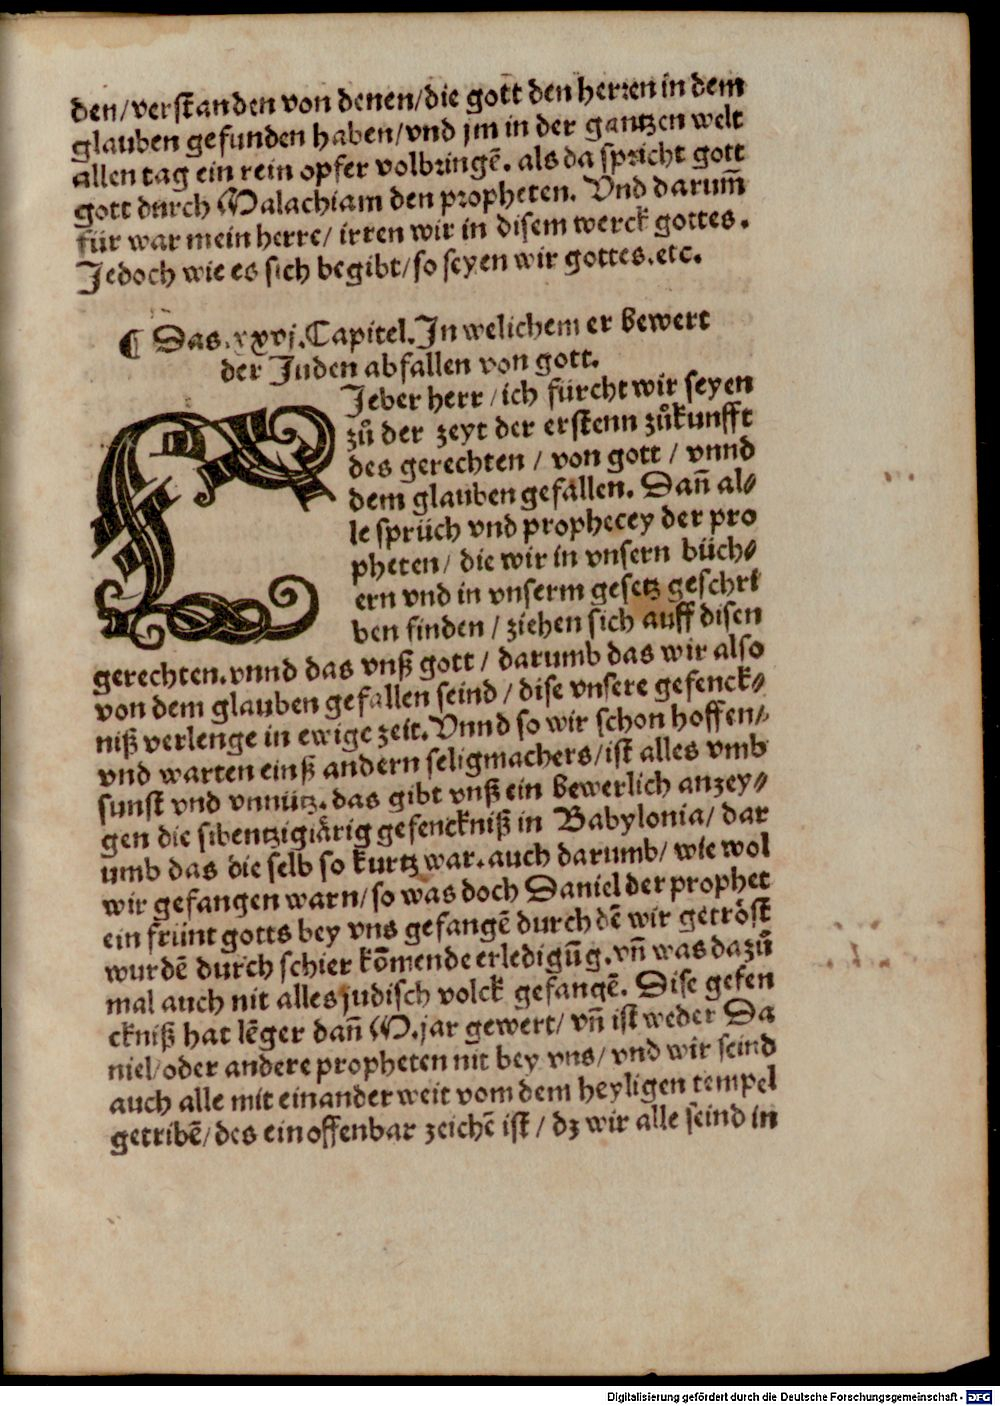 den/verstanden von denen/die gott den herren in dem
glauben gefunden haben/vnd jm in der gantzen welt
allen tag ein rein opfer volbringē. als da spricht gott
gott durch Malachiam den propheten. Vnd darum̄
für war mein herre/ irren wir in disem werck gottes.
Jedoch wie es sich begibt/so seyen wir gottes.etc.
¶ Das.xxvj.Capitel.Jn welichem er bewert
der Juden abfallen von gott.
LJeber herr/ich fürcht wir seyen
zů der zeyt der erstenn zůkunfft
des gerechten / von gott / vnnd
dem glauben gefallen. Dañ al⸗
le sprüch vnd prophecey der pro
pheten/ die wir in vnsern büch⸗
ern vnd in vnserm gesetz geschri
ben finden / ziehen sich auff disen
gerechten.vnnd das vnß gott / darumb das wir also
von dem glauben gefallen seind / dise vnsere gefenck⸗
niß verlenge in ewige zeit. Vnnd so wir schon hoffen⸗
vnd warten einß andern seligmachers/ist alles vmb
sunst vnd vnnütz. das gibt vnß ein bewerlich anzey⸗
gen die sibentzigjärig gefenckniß in Babylonia/ dar
umb das die selb so kurtz war. auch darumb/ wie wol
wir gefangen warn/so was doch Daniel der prophet
ein frünt gotts bey vns gefangē durch dē wir getröst
wurdē durch schier kōmende erledigūg.vñ was dazů
mal auch nit alles judisch volck gefangē. Dise gefen
ckniß hat lēger dañ M.jar gewert/ vñ ist weder Da
niel/oder andere propheten nit bey vns/ vnd wir seind
auch alle mit einander weit vom dem heyligen tempel
getribē/des ein offenbar zeichē ist / dz wir alle seind in
Digitalisierung gefördert durch die Deutsche Forschungsgemeinschaft - DFG